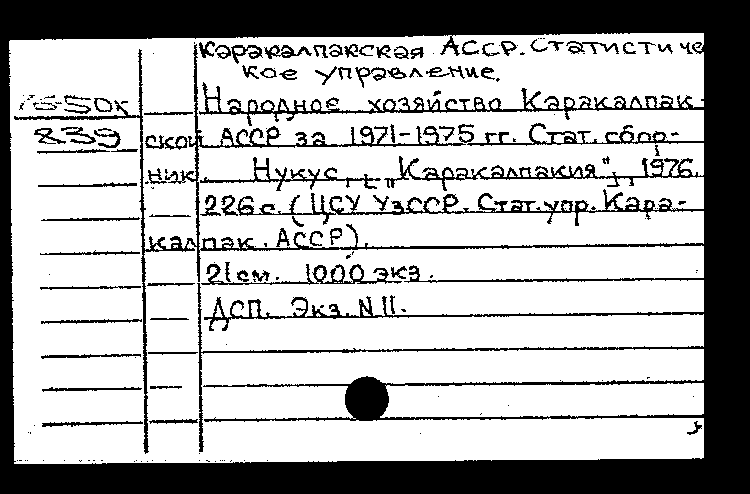 Каракалпакская АССР. Статистиче
кое управление.
76-50к Народное хозяйство Каракалпак-
839 ской АССР за 1971-1975 гг. Стат. сбор-
ник. Нукус, „Каракалпакия", 1976.
226 с. (ЦСУ УзССР. Стат. упр. Кара-
калпак. АССР).
21 см. 1000 экз.
ДСП. Экз. N 11.